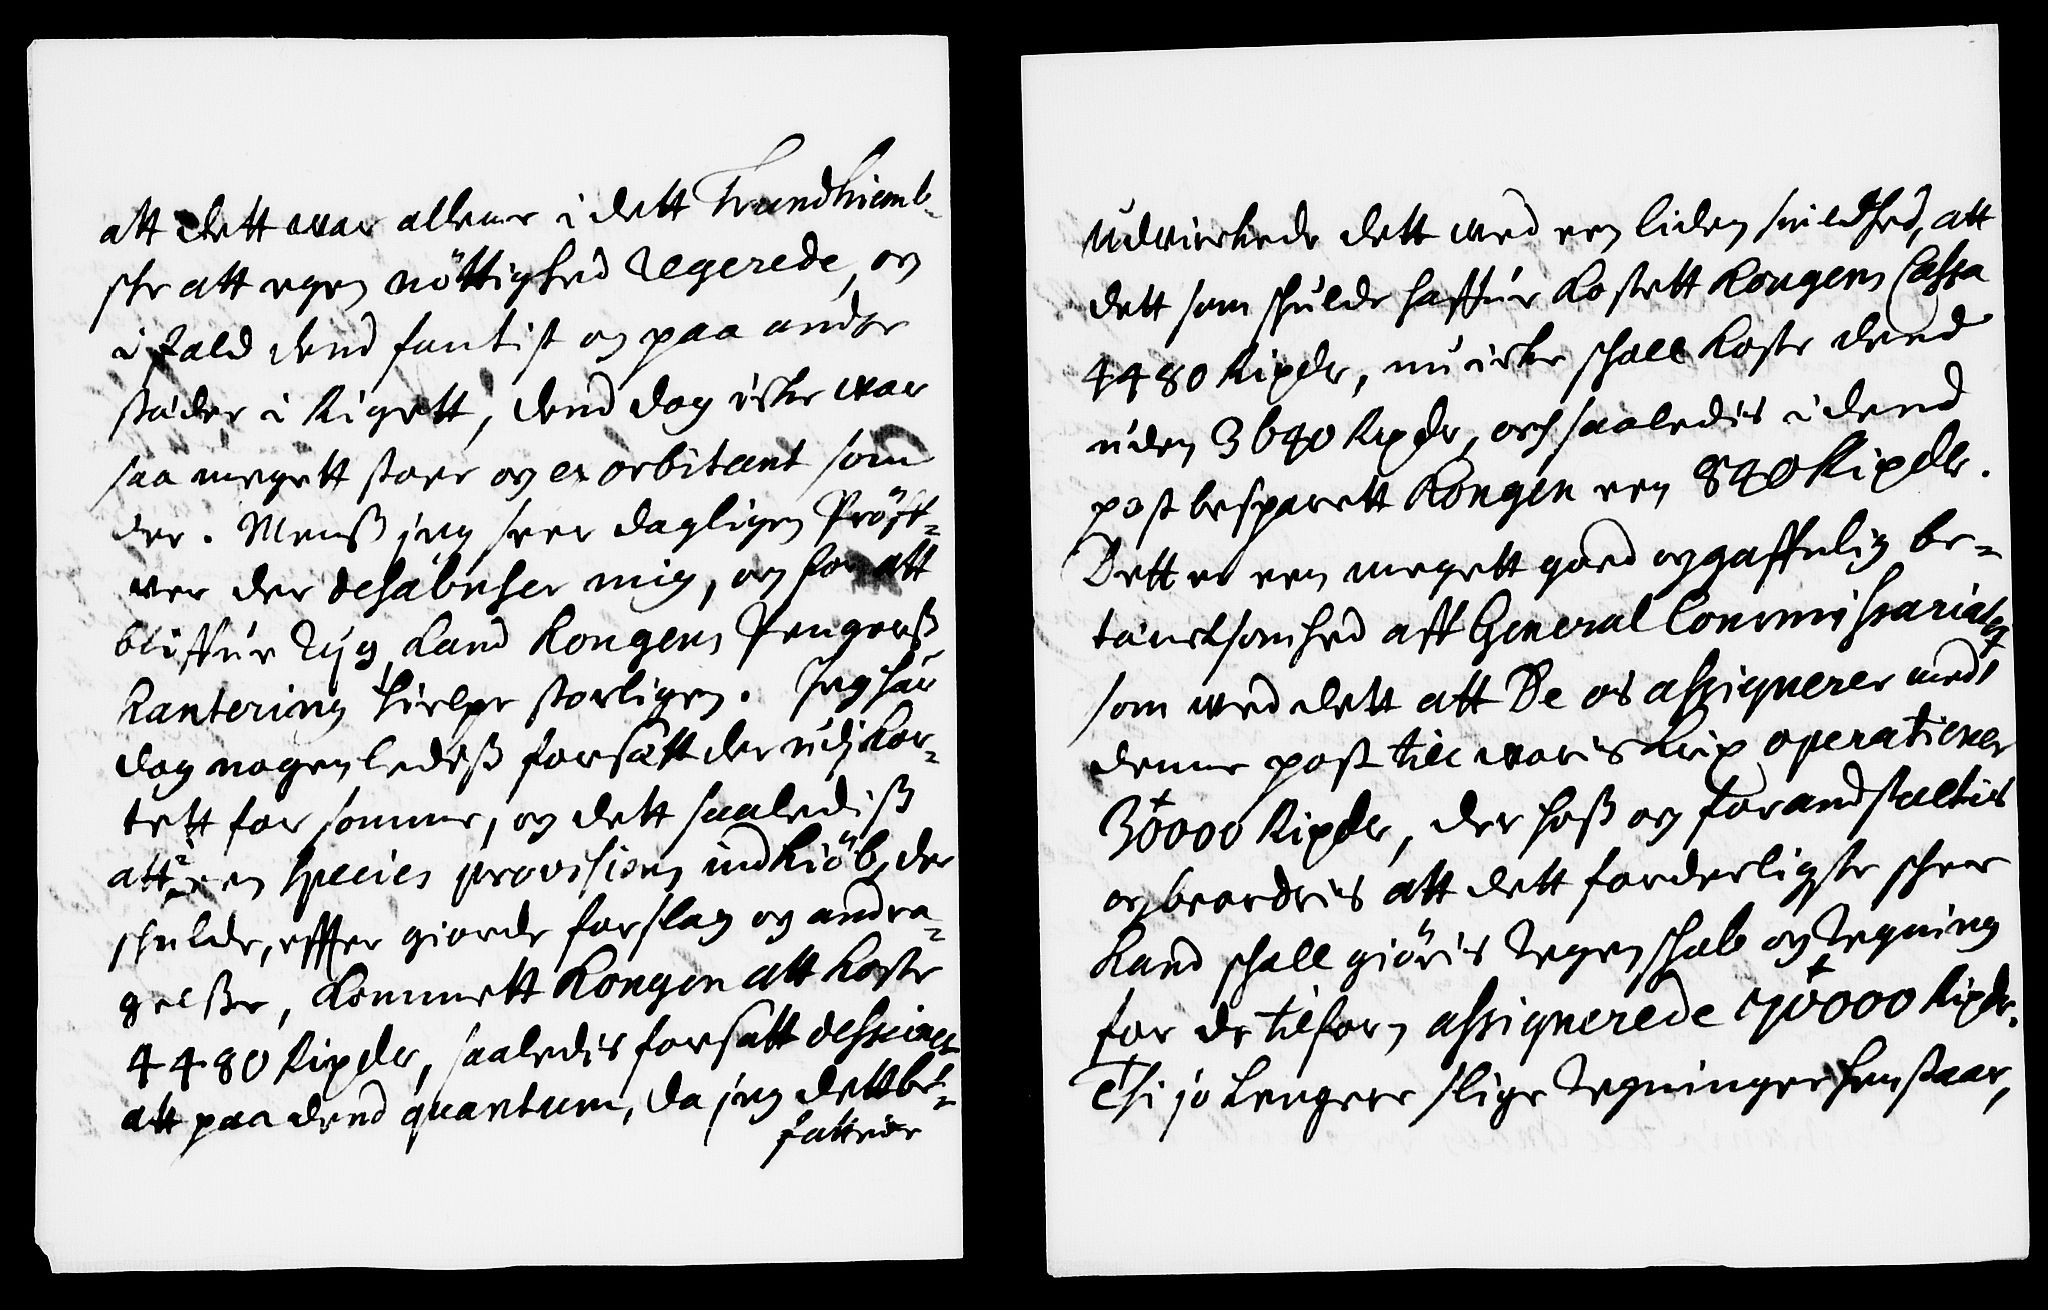 att dett war allene i dett Trundhiemb-
ske att egen nöttighed Regerede, og
i fald dend fantist og paa andre
stæder i Rigett, dend dog icke war
saa megett stoer og exorbitant som
der. Menß jeg seer dagligen Pröff-
wer der desabuser mig, og for att
bliffue Ryg, kand Kongens Pengerß
kantering hielpe storligen. Jeg har
dog nogenledeß forsatt der udj kor-
tett for somme, og dett saalediß
att een Species provision indkiöb, der
schulde, effter giorde forslag og andra-
gelße, kommett Kongen att koste
4480 Rixdlr, saaledis forsatt dessciner
att paa dend quantum, da jeg dett be-
fattede
udvirkede dett med een liden snildhed, att
dett som schulde haffue kostett Kongens Cassa
4480 Rixdlr, nu icke schall koste dend
uden 3640 Rixdlr, och saaledis i dend
post besparett Kongen een 840 Rixdlr.
Dett er een megett goed og gaffnlig be-
tæncksomhed aff General Commissariatet
som med dett att De os assignerer med
denne post till woris Krix operationer
30000 Rixdlr, der hoß og forandstaltis
og beordris att dett forderligste scheer
kand schall giöris Regenschab og Regning
for de tilforn assignerede 70000 Rixdr.
Thi jo lengere slige Regninger henstaar,